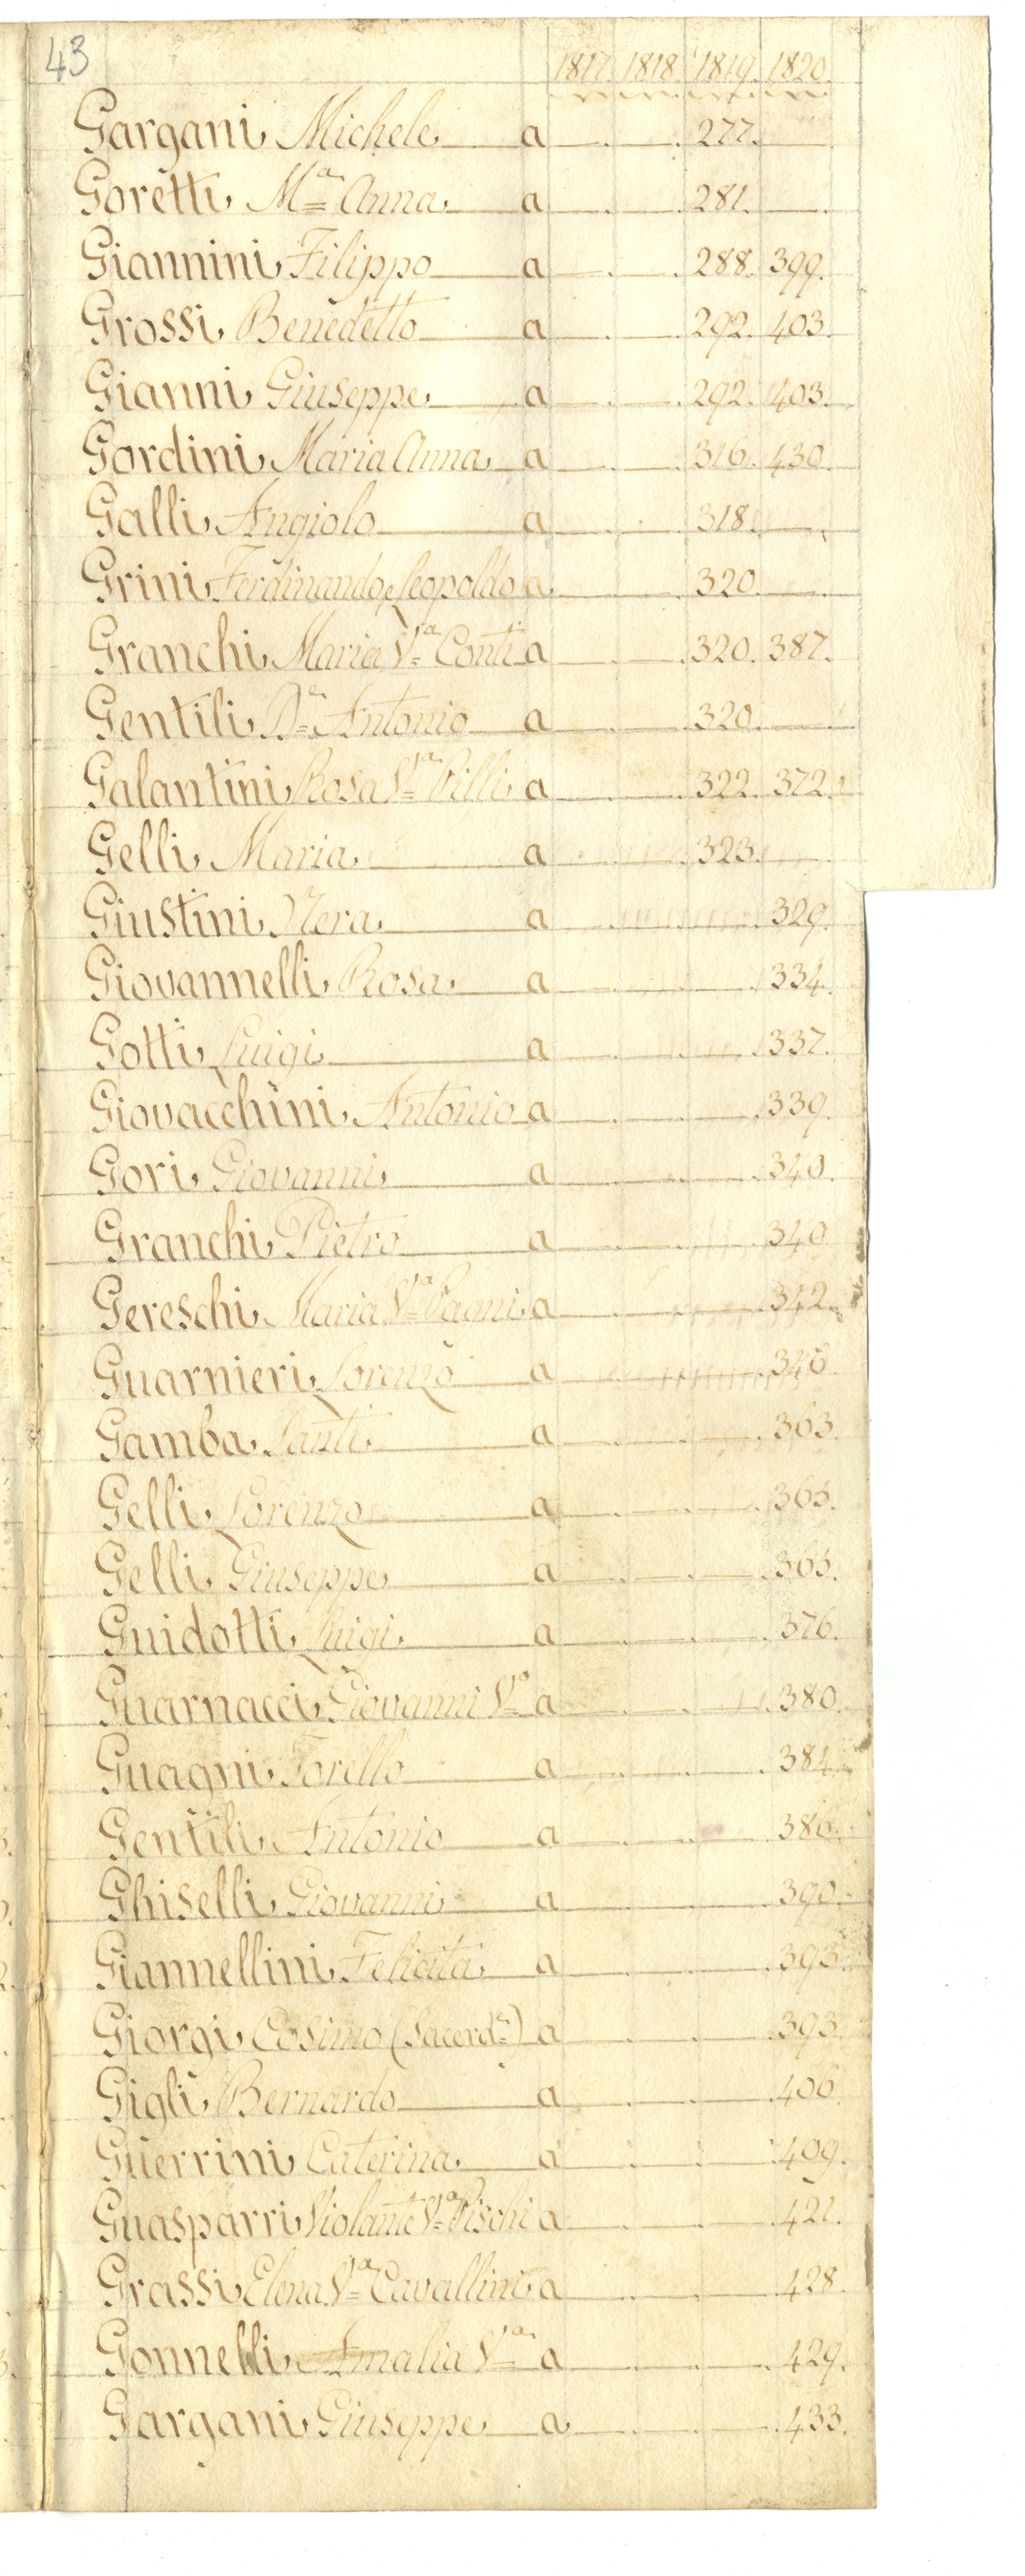 43
1817. 1818. 1819. 1820.
Gargani Michele a 277.
Goretti Mª Anna a 281.
Giannini Filippo a 288. 399.
Grossi Benedetto a 292. 403.
Gianni Giuseppe a 292. 403.
Gordini Maria Anna a 316. 430.
Galli Angiolo a 318.
Grini Ferdinando, Leopoldo a 320.
Granchi Maria Vª Conti a 320. 387.
Gentili Antonio a 320.
Galantini Rosa Vª Billi a 322. 372.
Gelli Maria a 323.
Giustini Nera a 329.
Giovannelli Rosa a 334.
Gotti Luigi a 337.
Giovacchini Antonio a 339.
Gori Giovanni a 340.
Granchi Pietro a 340
Gereschi Maria Vª Pagni a 342.
Guarnieri Lorenzo a
Gamba Santi a 363.
Gelli Lorenzo a 363.
Gelli Giuseppe a 363.
Guidotti Luigi a 376.
Guarnacci Giovanni Vº a 380.
Guagni Torello a 384.
Gentili Antonio a 386.
Ghiselli Giovanni a 390.
Giannellini Felicita a 393.
Giorgi Cosimo (Sacerdᵉ) a 393.
Gigli Bernardo a 406.
Guerrini Caterina a 409.
Guasparri Violante Vª Pischi a 421.
Grassi Elena Vª Cavallini a 428.
Gonnelli Amalia Vª a 429.
Gargani Giuseppe a 433.